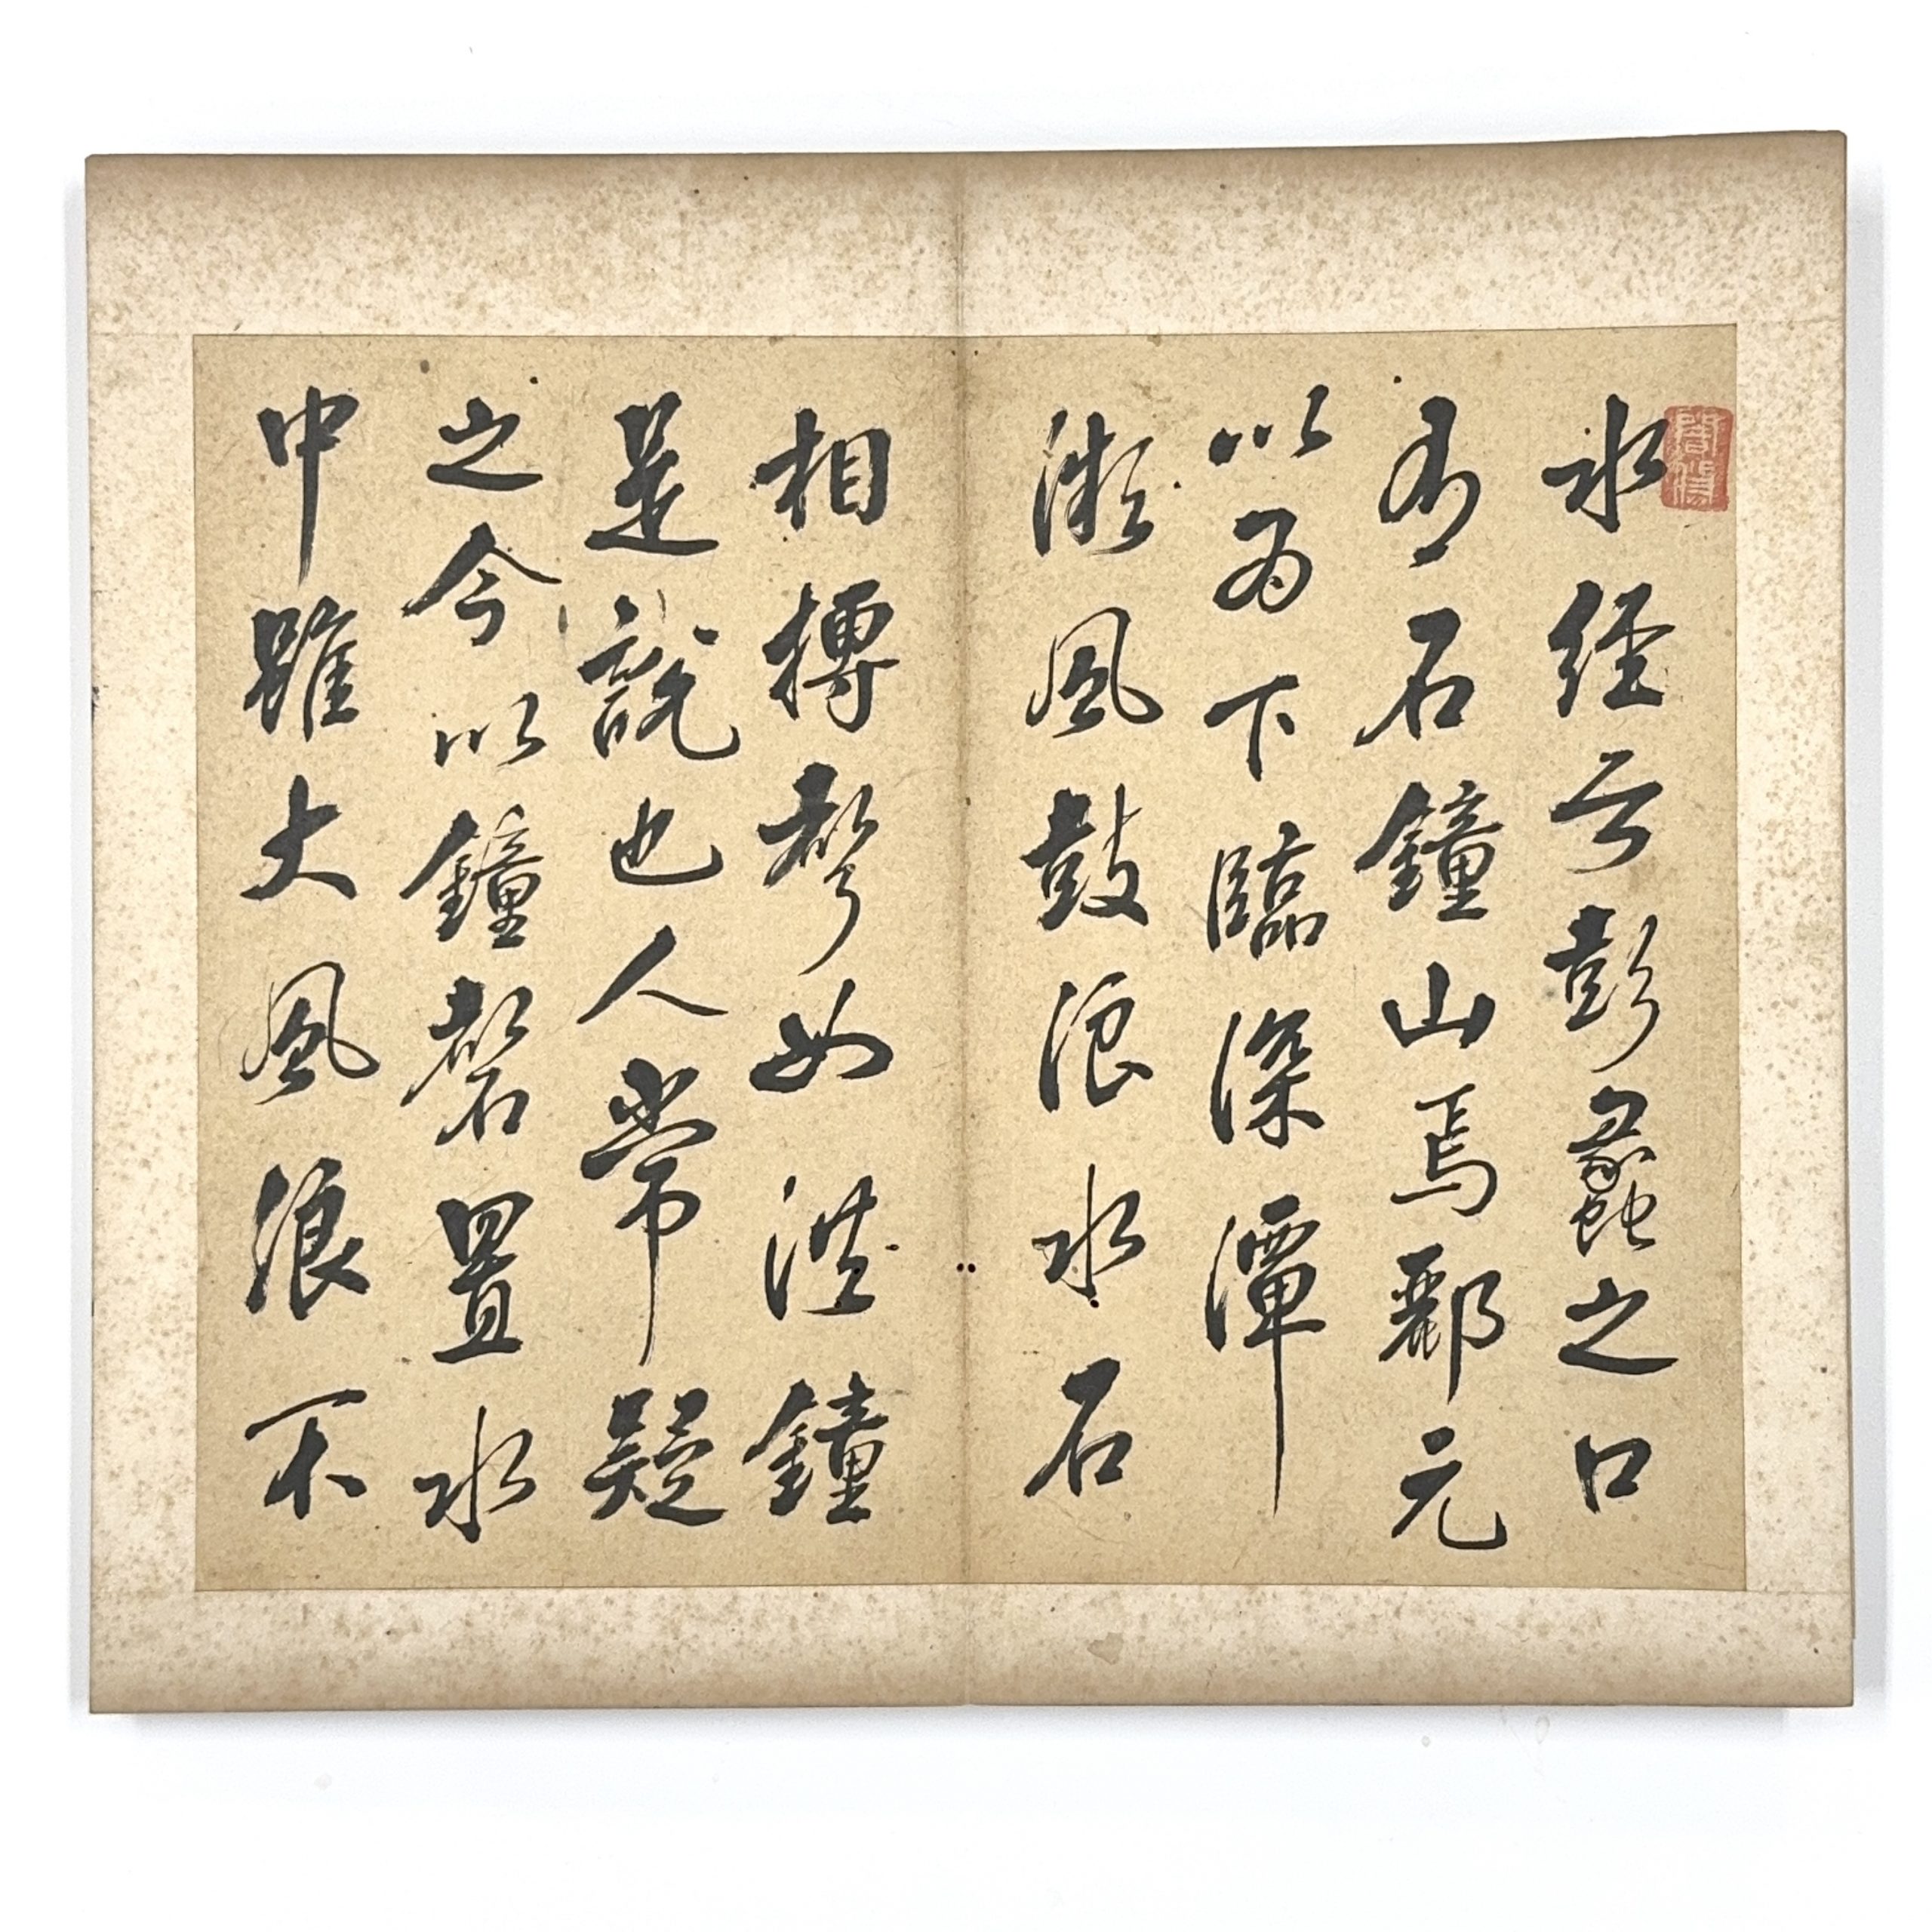 水經云彭蠡之口
有石鐘山焉酈元
以為下臨深潭
微風鼓浪水石
相搏聲如洪鐘
是說也人常疑
之今以鐘磬置水
中雖大風浪不